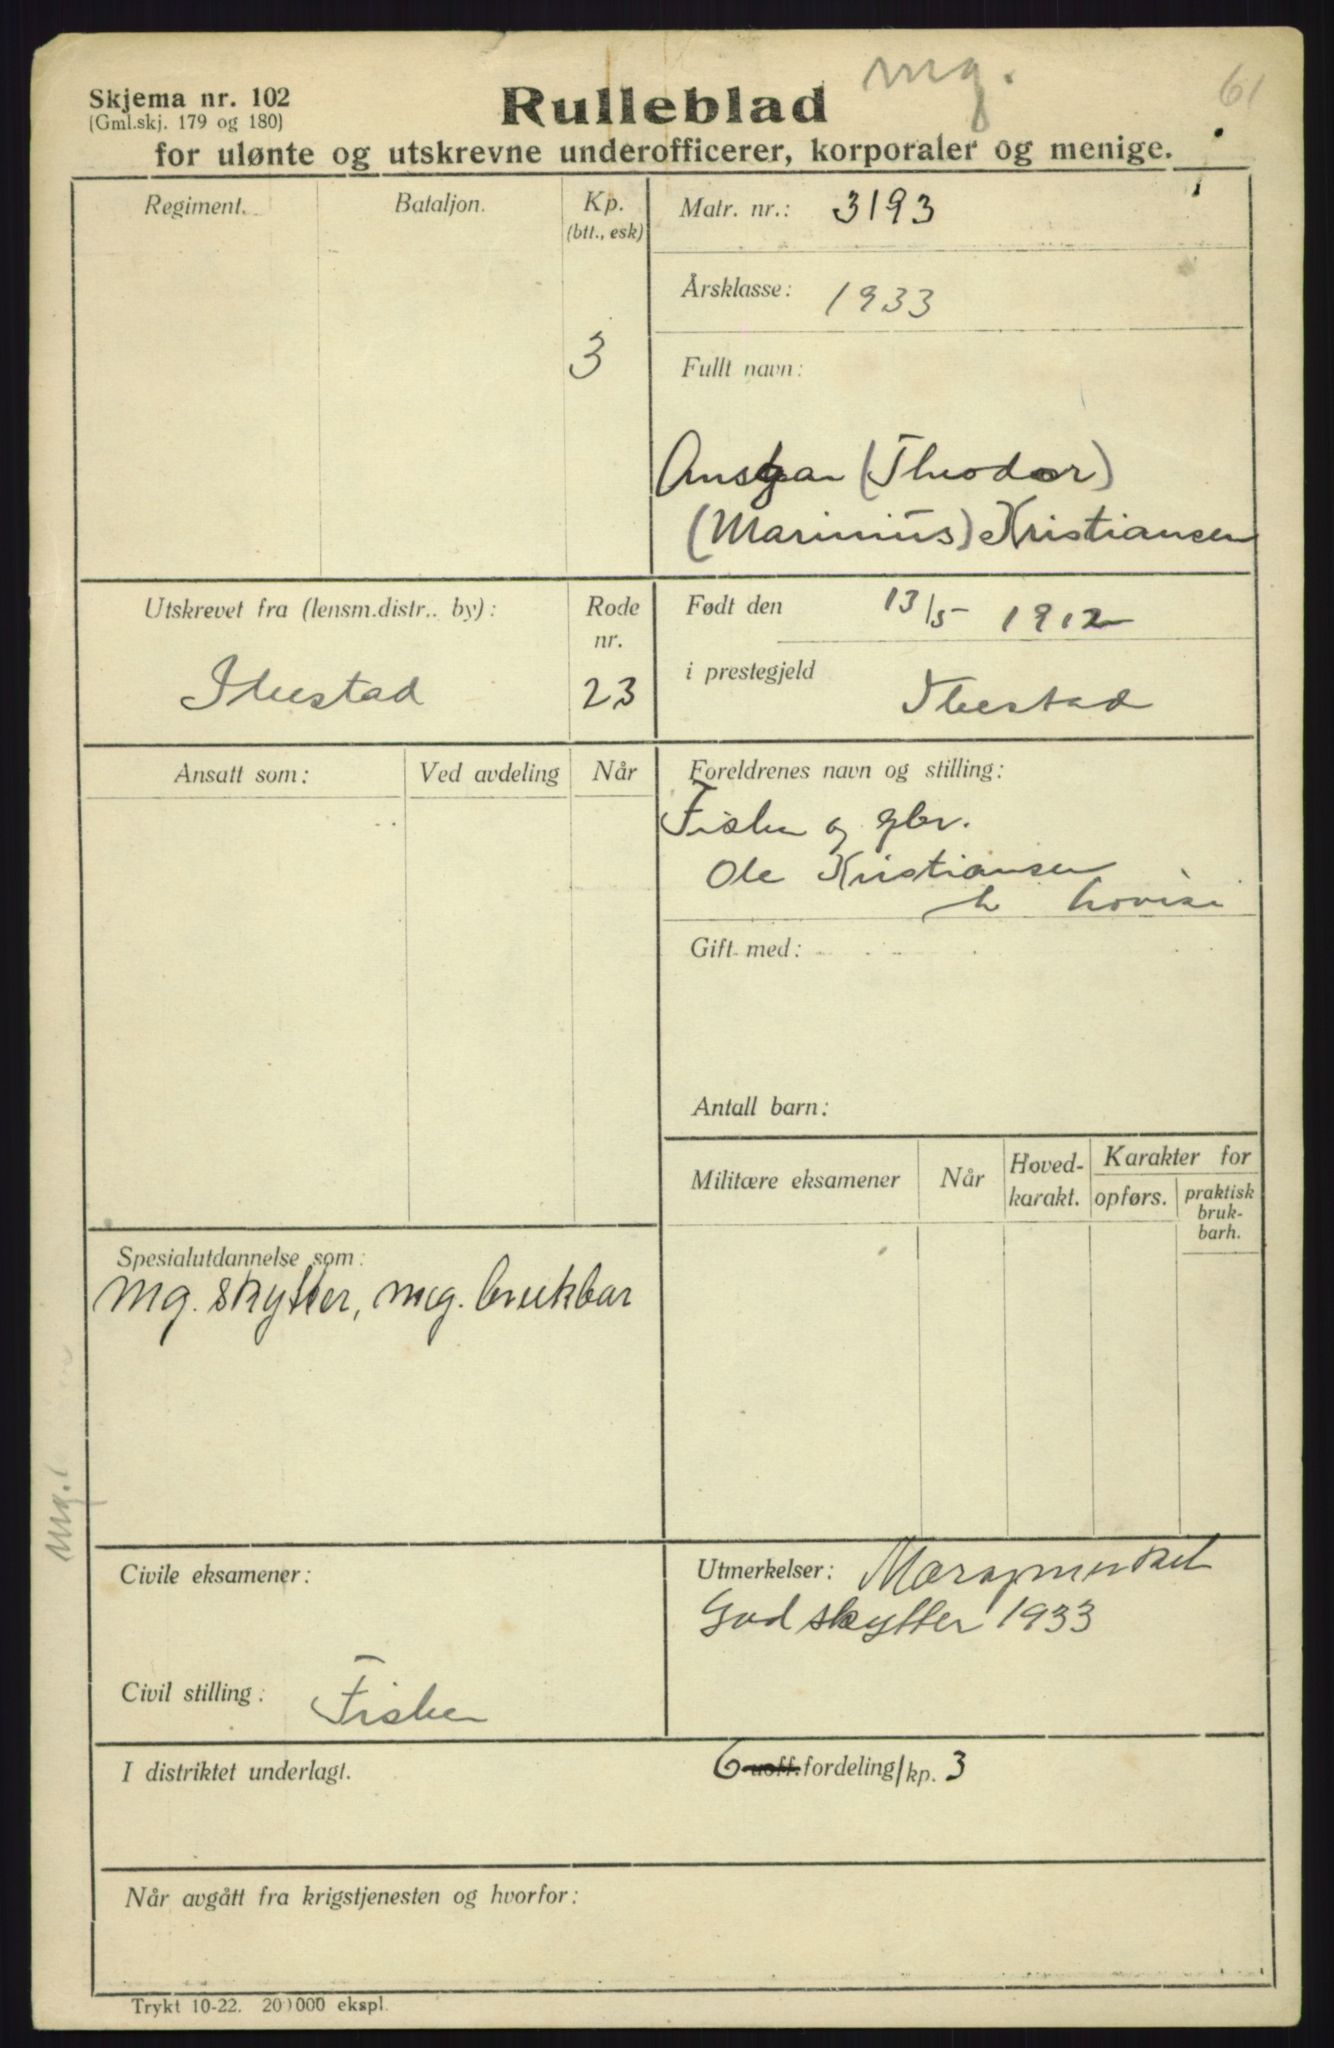 mg.
61
Skjema nr. 102
(Gml.skj. 179 og 180)
Rulleblad
for ulønte og utskrevne underofficerer, korporaler og menige.
Regiment.
Bataljon.
Kp.
(btt., esk)
3
Matr. nr.: 3193
Årsklasse: 1933
Fullt navn:
Ansgar (Theodor)
(Marinius) Kristiansen
Utskrevet fra (lensm.distr.. by):
Ibestad
Rode
nr.
23
Født den 13/5 1912
i prestegjeld Ibestad
Ansatt som:
Ved avdeling
Når
Foreldrenes navn og stilling:
Fisker og gbr.
Ole Kristiansen
h Lovise
Gift med:
Antall barn:
Militære eksamener
Når
Hoved-
karakt.
Karakter for
opførs.
praktisk
bruk-
barh.
Spesialutdannelse som:
Mg. skytter, mg. brukbar
Mg.
Civile eksamener:
Civil stilling: Fisker
Utmerkelser: Marsjmerket
God skytter 1933
I distriktet underlagt.
6 uoff. fordeling/kp. 3
Når avgått fra krigstjenesten og hvorfor:
Trykt 10-22. 20)000 ekspl.